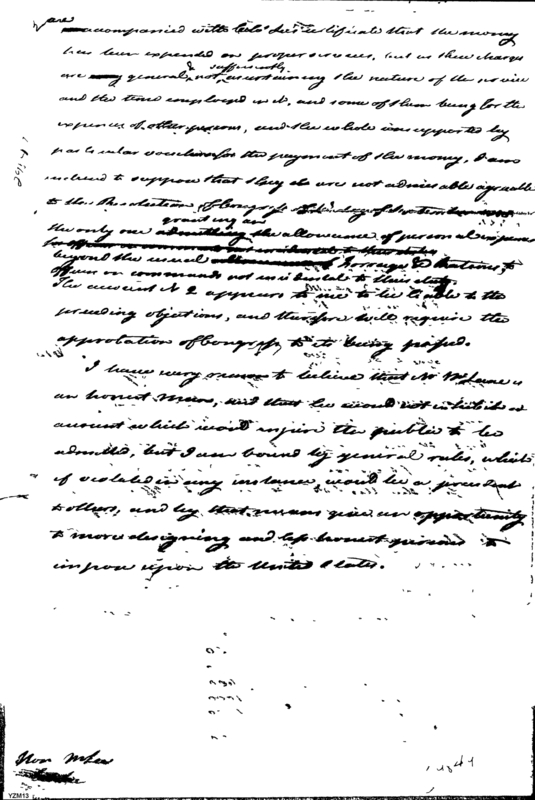 are
accompanied with Colo. Lee's certificate that the money
has been expended on proper services, but as these charges
are general & not sufficiently ascertaining the nature of the service
and the time employed in it, and some of them being for the
expences of other persons, and the whole unsupported by
particular vouchers for the payment of the money, I am
inclined to suppose that they are not admissable agreeable
to the Resolution of Congress
the only one granting an allowance of personal expences
beyond the usual forrage & rations, to
officers on commands not incidental to their duty.
The account N 2 appears to me to be liable to the
preceding objections, and therefore will require the
approbation of Congress, to its being passed.
I have every reason to believe that Mr McLane is
an honest Man, and that he would not exhibit an
account which would injure the public to be
admitted, but I am bound by general rules, which
if violated in any instance, would be a precedent
to others, and by that means give an opportunity
to more designing and less honest persons to
impose upon the United States.
Hon Mr Lee
YZM13